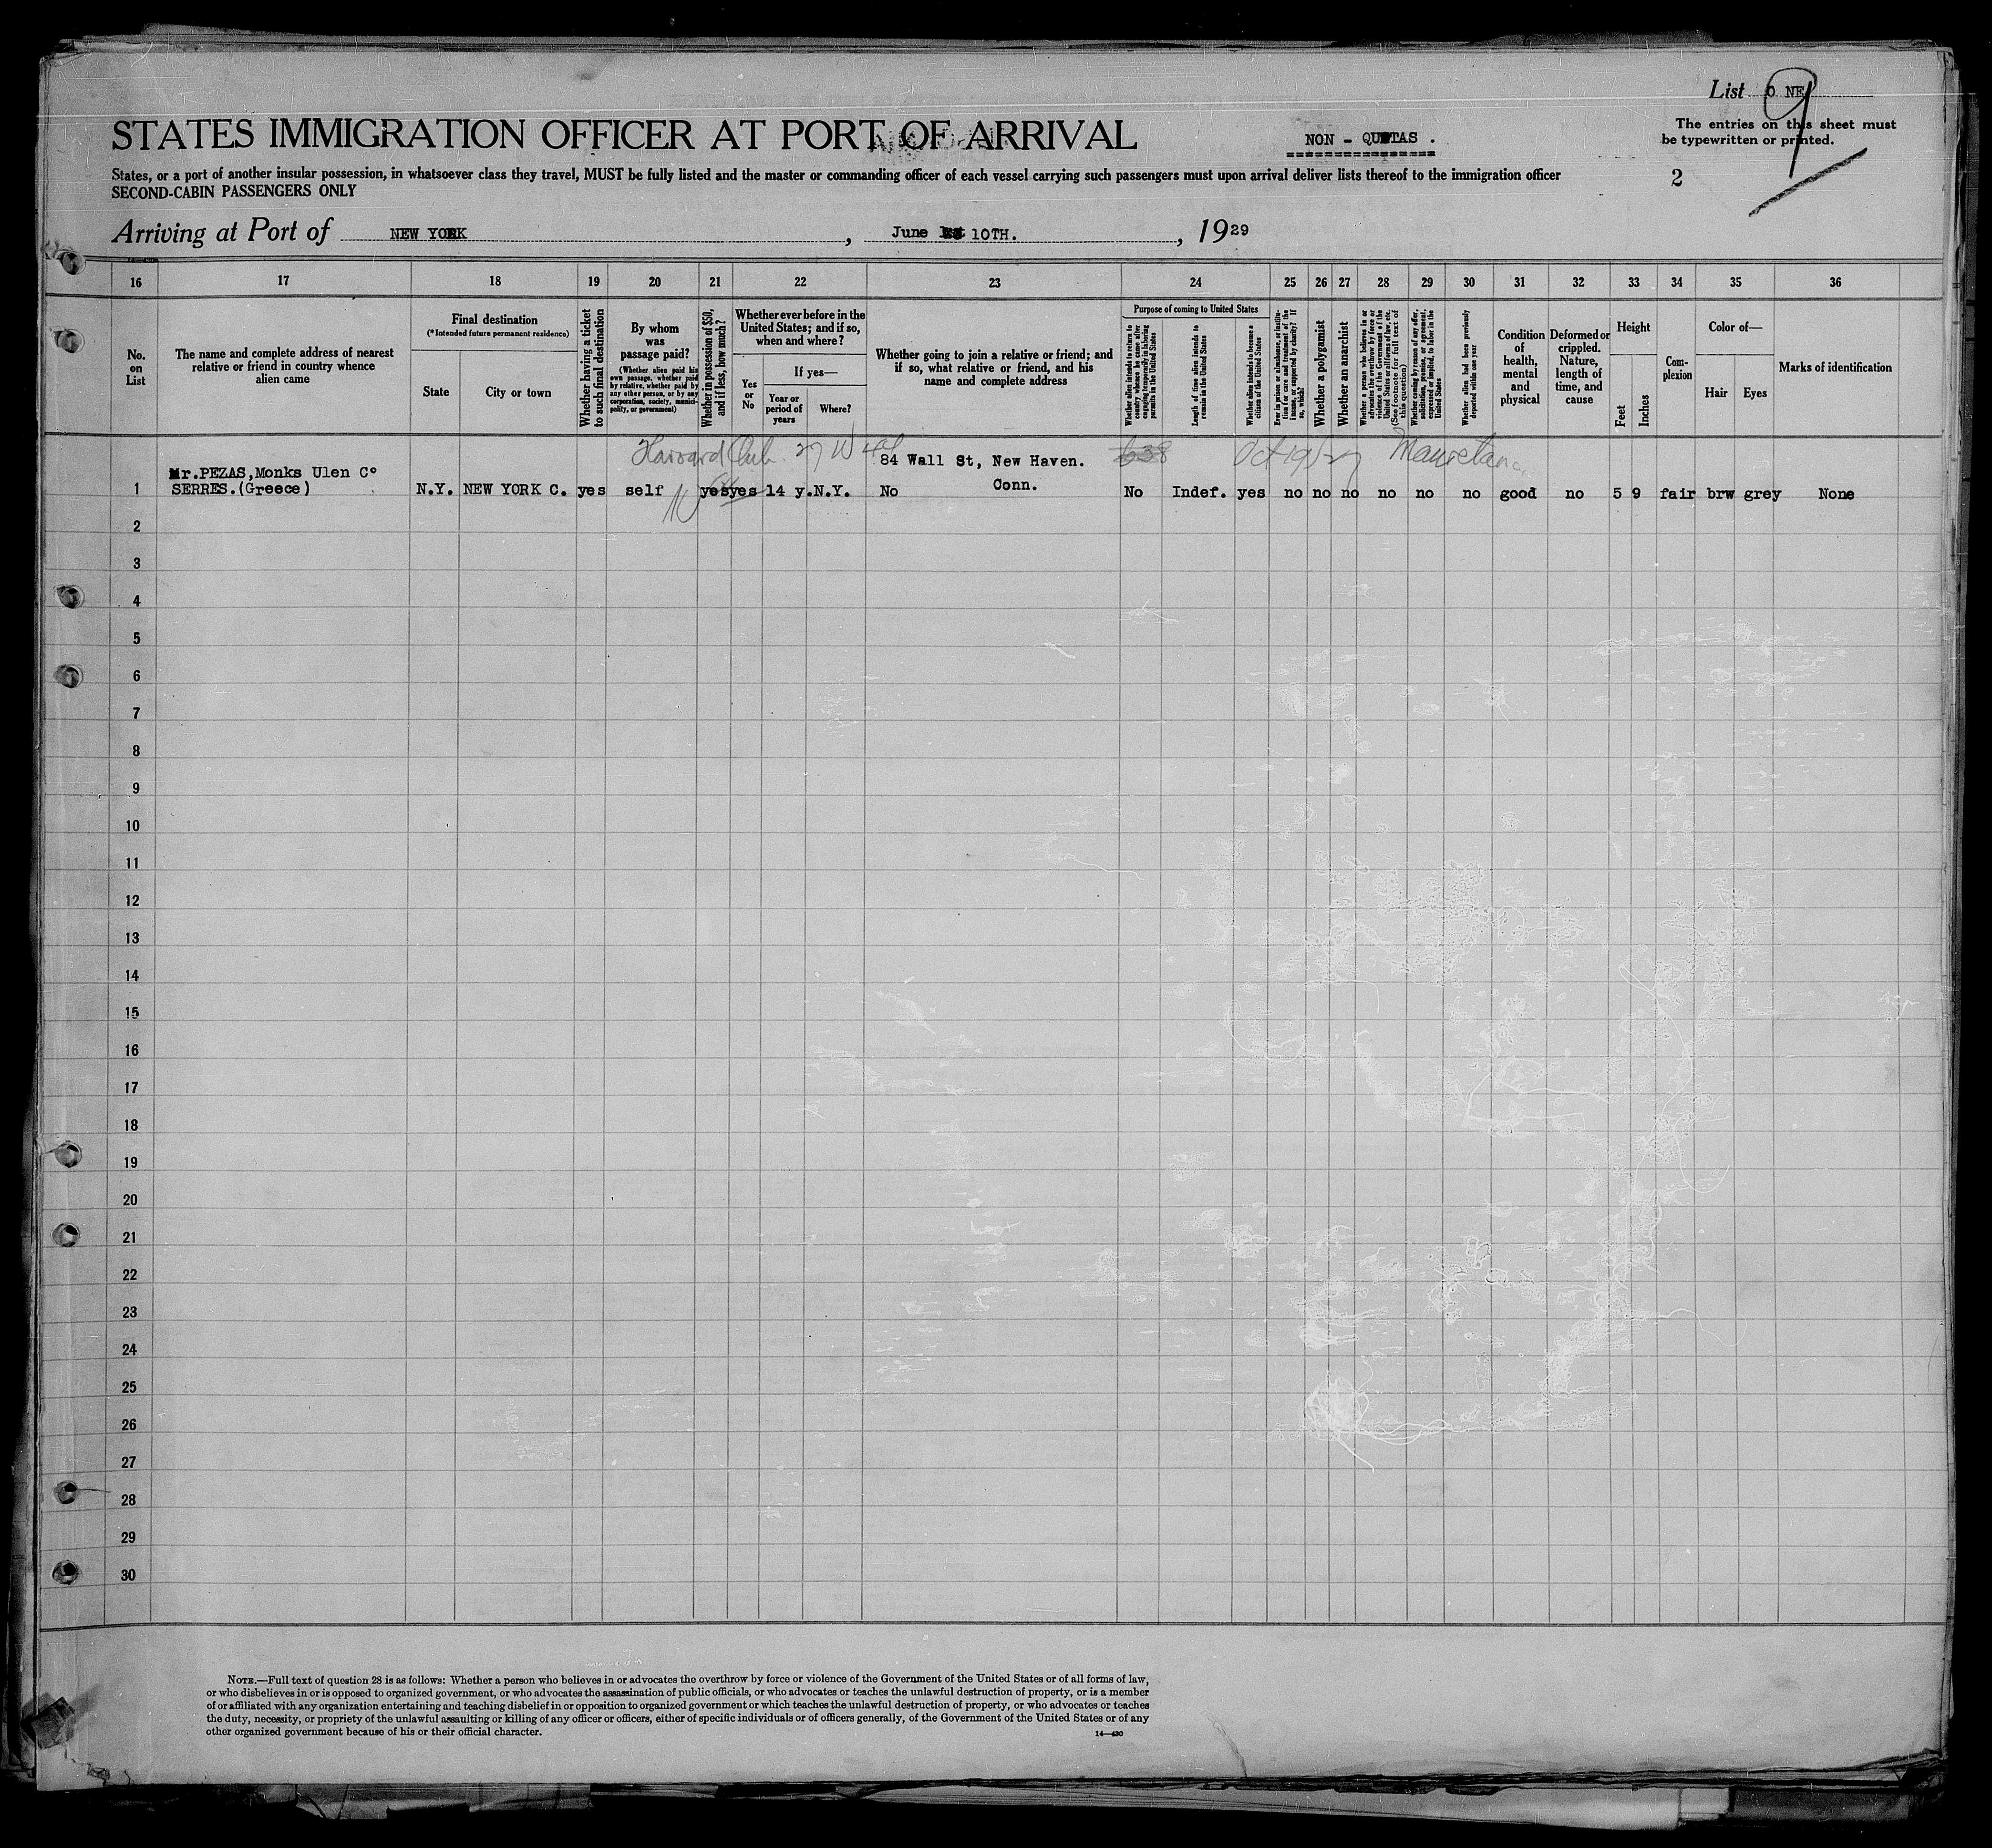 List O NE
9
STATES IMMIGRATION OFFICER AT PORT OF ARRIVAL
NON - QUOTAS .
The entries on this sheet must
be typewritten or printed.
States, or a port of another insular possession, in whatsoever class they travel, MUST be fully listed and the master or commanding officer of each vessel carrying such passengers must upon arrival deliver lists thereof to the immigration officer
SECOND-CABIN PASSENGERS ONLY
2
Arriving at Port of NEW YORK, June 10TH., 1929
16 17 18 19 20 21 22 23 24 25 26 27 28 29 30 31 32 33 34 35 36
No. on List
The name and complete address of nearest
relative or friend in country whence
alien came
Final destination
(*Intended future permanent residence)
State
City or town
Whether having a ticket
to such final destination
By whom
was
passage paid?
(Whether alien paid his
own passage, whether paid
by relative, whether paid by
any other person, or by any
corporation, society, munici-
pality, or government)
Whether in possession of $50,
and if less, how much?
Whether ever before in the
United States; and if so,
when and where?
Yes or No
If yes—
Year or
period of
years
Where?
Whether going to join a relative or friend; and
if so, what relative or friend, and his
name and complete address
Purpose of coming to United States
Whether alien intends to return to
country whence he came after
engaging temporarily in laboring
pursuits in the United States
Length of time alien intends to
remain in the United States
Whether alien intends to become a
citizen of the United States
Ever in prison or almshouse, or institu-
tion for care and treatment of the
insane, or supported by charity? If
so, which?
Whether a polygamist
Whether an anarchist
Whether a person who believes in or
advocates the overthrow by force or
violence of the Government of the
United States or all forms of law, etc.
(See footnote for full text of
this question)
Whether coming by reason of any offer,
solicitation, promise, or agreement,
expressed or implied, to labor in the
United States
Whether alien had been previously
deported within one year
Condition
of
health,
mental
and
physical
Deformed or
crippled.
Nature,
length of
time, and
cause
Height
Feet
Inches
Com-
plexion
Color of—
Hair
Eyes
Marks of identification
Harvard Club 27 W 44 Oct 19/27 Mauretania
Mr.PEZAS,Monks Ulen Cº 84 Wall St, New Haven.
Conn.
1 SERRES.(Greece) N.Y. NEW YORK C. yes self yes yes 14 y. N.Y. No No Indef. yes no no no no no no good no 5 9 fair brw grey None
2
3
4
5
6
7
8
9
10
11
12
13
14
15
16
17
18
19
20
21
22
23
24
25
26
27
28
29
30
NOTE.—Full text of question 28 is as follows: Whether a person who believes in or advocates the overthrow by force or violence of the Government of the United States or of all forms of law,
or who disbelieves in or is opposed to organized government, or who advocates the assassination of public officials, or who advocates or teaches the unlawful destruction of property, or is a member
of or affiliated with any organization entertaining and teaching disbelief in or opposition to organized government or which teaches the unlawful destruction of property, or who advocates or teaches
the duty, necessity, or propriety of the unlawful assaulting or killing of any officer or officers, either of specific individuals or of officers generally, of the Government of the United States or of any
other organized government because of his or their official character.
14—430